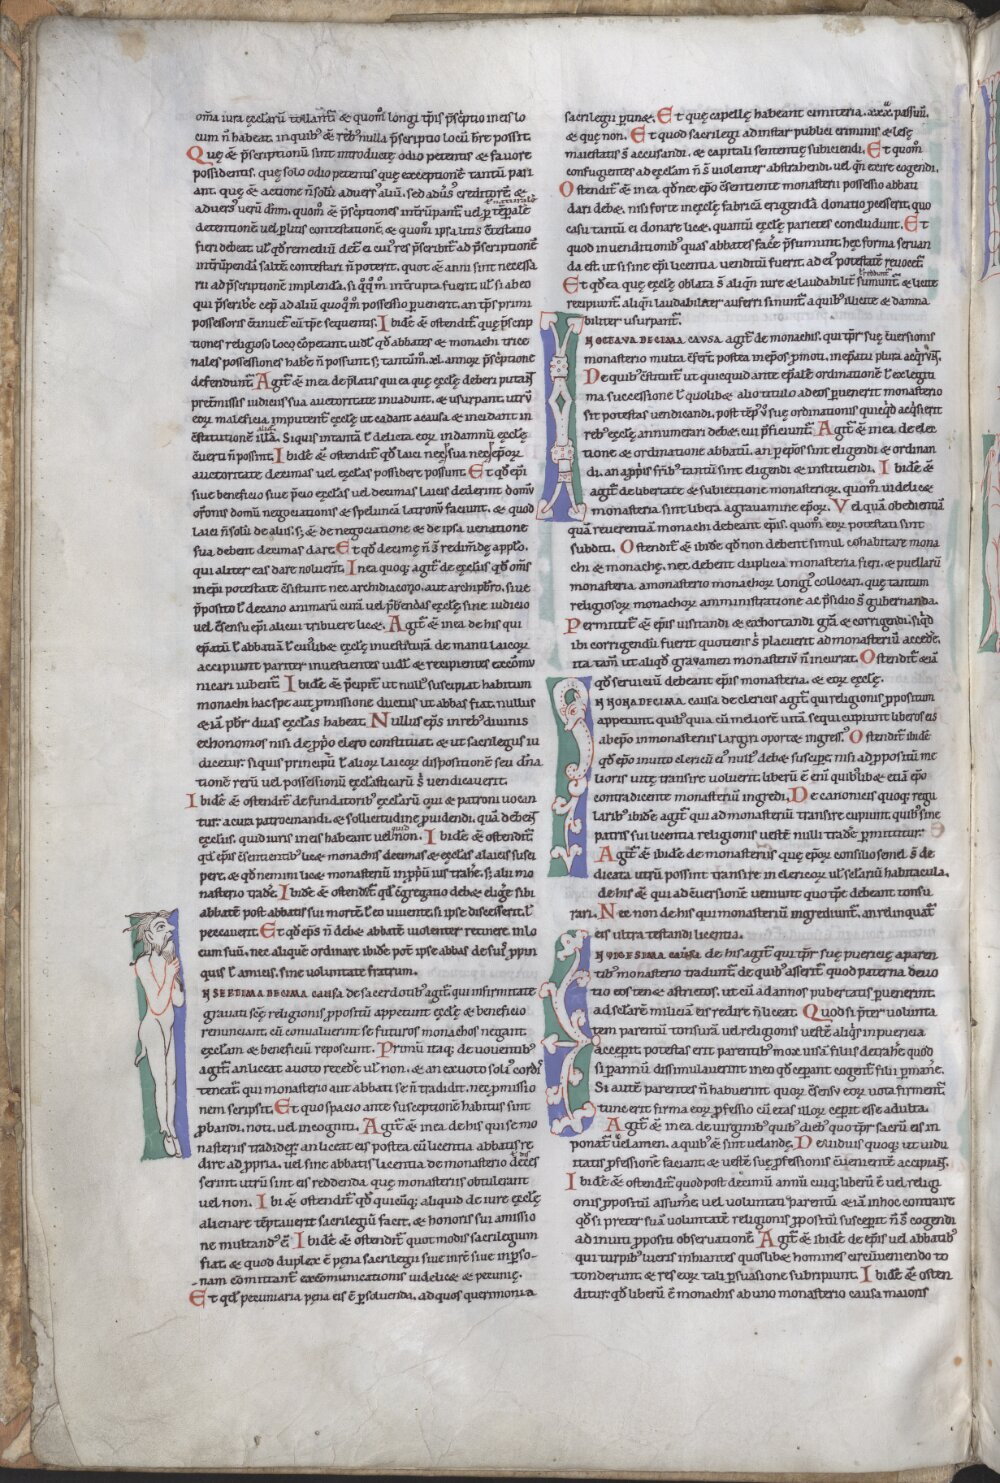 om̄a iura ęcclarū tollant̄ & quom̊ longi tp̄is p̄sc̄ptio in eis lo
cum n̄ habeat. in quib; & reb; nulla p̄scriptio locū hr̄e possit.
Quę & p̄scriptionū sint introductę odio petentis & fauore
possidentis. quę solo odio petentis quę exceptionē tantū pari
ant. quę & actione n̄ solū aduers' aliū. sed aduers' creditorē &
aduers' uerū dn̄m. quom̊ & p̄sc̄ptiones int̄rūpant̄ uel p̱ tēpalē
& naturalē
detentionē uel p̱ litis contestationē. & quom̊ ipsa litis c̄testatio
fieri debeat ul' qd̄ remediū det̄ ei cui' res p̄scribit̄ ad p̄scriptionē
int̄rūpendā saltē contestari n̄ poterit. quot & anni sint necessa
rii ad p̄scriptionē implendā. si qͥqͣm int̄rupta fuerit. ul' si ab eo
qui p̄scribe cep̄ ad aliū quoqͦm possessio p̱uenerit. an tp̄s primi
possessoris c̄tinuet̄ cū tp̄e sequentis. Ibidē & ostendit̄. quę p̄scrip
tiones religioso loco c̄petant. uidl' qd̄ abbates & monachi trice
nales possessiones habe n̄ possunt. s; tantūm̊. xl. annoꝝ p̄sc̄ptione
defendunt̄. Agit̄ & in ea de p̄latis qui ea quę ęcclę deberi putant̄
pretmissis iudiciis sua auctoritate inuadunt. & usurpant. utrū
eoꝝ maleficia imputent̄ ęcclę ut cadant a causa & incidant in
c̄stitutionē illā. Si quis in tantā ł delicta eoꝝ in damnū ęcclę
c̄uerti n̄ possint. Ibidē & ostendit̄ qd̄ laici nec sua nec ep̄oꝝ
auctoritate decimas uel ęcclas possidere possunt. Et qd̄ ep̄i
siue beneficio siue p̄cio ęcclas uel decimas laicis dederint domū
or̄onis domū negociationis & speluncā latronū faciunt. & quod
laici n̄ solū de aliis. s; & de negociatione & de ipsa uenatione
sua debent decimas dare. Et qd̄ decimę n̄ s̄ redimēdę a pp̄lo.
qui aliter eas dare noluerit̄. In ea quoq; agit̄ de ęcclis qd̄ om̄s
in ep̄i potestate c̄sistunt nec archidiacono. aut archipbr̄o. siue
p̄posito ł decano animarū curā uel p̄bendas ęcclę sine iudicio
uel c̄sensu ep̄i alicui tribuere licea&. Agit̄ & in ea de his qui
ep̄atū ł abbatiā ł cui'libe& ęcclę inuestiturā de manu laicoꝝ
accipiunt pariter inuestientes uidl' & recipientes excōmu
nicari iubent̄. Ibidē & p̄cipit̄ ut null' suscipiat habitum
monachi hac spe aut p̱missione ductus ut abbas fiat. nullus
& iā pbr̄ duas ęcclas habeat. Nullus ep̄s in reb; diuinis
echonomos nisi de p̱p̱o clero constituat. & ut sacrilegus iu
dicetur. si quis principū ł alioꝝ laicoꝝ dispositionē seu dn̄a
tionē rerū uel possessionū ęcclasticarū s̄ uendicauerit.
Ibidē & ostendit̄ de fundatorib; ęcclarū qui & patroni uocan
tur. a cura patrocinandi. & sollicitudine p̱uidendi. quā debent̄
ęcclis. quid iuris in eis habeant uel quid non. Ibidē & ostendit̄
qd̄ ep̄is c̄sentientib; licea& monachis decimas & ęcclas a laicis susci
pere. & qd̄ nemini licea& monasteriū in p̱p̱ū ius trahe. s; alii mo
nasterio trade. Ibidē & ostendit̄ qd̄ c̄gregatio debea& elige sibi
abbatē post abbatis sui mortē. ł eo uiuente. si ipse discesserit. ł
peccauerit. Et qd̄ ep̄s n̄ debea& abbatē uiolenter retinere in lo
cum suū. nec aliquē ordinare ibidē. pot̄ ipse abbas de suis p̱pin
quis ł amicis. sine uoluntate fratrum.
IN SEPTIMA DECIMA causa de sacerdotib; agit̄. qui infirmitate
grauati scę̄ religionis p̱positū appetunt ęcclę & beneficio
renunciant. cū conualuerint se futuros monachos negant.
ęcclam & beneficiū reposcunt. Primū itaq; de uouentib;
agit̄. an liceat a uoto recede ul' non. & an ex uoto solo cordis
teneat̄. qui monasterio aut abbati se n̄ tradidit. nec p̱missio
nem scripsit. Et quo spacio ante susceptionē habitus sint
p̱bandi. noti. uel incogniti. Agit̄ & in ea de his qui se mo
nasteriis tradider̄. an liceat eis postea cū licentia abbatis re
dire ad p̱pria. uel sine abbatis licentia de monasterio disces
serint. utrū sint eis reddenda. quę monasteriis obtulerant
uel non. Ibi & ostendit̄ qd̄ quicūq; aliquid de iure ęcclę
alienare tēptauerit sacrilegiū facit. & honoris sui amissio
ne multand' ē. Ibidē & ostendit̄ quot modis sacrilegium
fiat. & quod duplex ē pęna sacrilegii siue in rē siue in p̱so-
nam cōmittant̄. excōmunicationis uidelice& & pecunię.
Et qd̄ pecuniaria pęna eis ē p̱soluenda. ad quos querimonia
sacrilegii p̱tine&. Et quę capellę habeant cimiteria. xxx. passuū.
& quę non. Et quod sacrilegi ad instar publici criminis & lesę
maiestatis s̄ accusandi. & capitali sententię subiciendi. Et quom̊
confugientes ad ęcclam n̄ s̄ uiolenter abstrahendi. uel qn̄ exire cogendi.
Ostendit̄ & in ea qd̄ nec ep̄o c̄sentiente monasterii possessio abbati
dari debea&. nisi forte in ęcclę fabricā erigendā donatio p̱cesserit. quo
casu tantū ei donare licea&. quantū ęcclę parietes concludunt. Et
quod in uenditionib; quas abbates face p̄sumunt. hęc forma seruan
da est. ut si sine ep̄i licentia uenditū fuerit. ad ei' potestatē reuocet̄.
Et qd̄ ea quę ęcclę oblata s̄ aliqn̄ iure & laudabilit̄ sumunt̄. & licite
ł reddunt̄
recipiunt̄. aliqn̄ laudabiliter auferri sinunt̄. a quib; illicite & damna
biliter usurpant̄.
IN OCTAVA DECIMA CAVSA agit̄ de monachis. qui tp̄r suę c̄uersionis
monasterio multa c̄fer̄t. postea in ep̄os p̱moti. in ep̄atu plura acq̄rūt̄.
De quib; c̄stituit̄. ut quicquid ante ep̄alē ordinationē ł ex legiti
ma successione ł quolibe& alio titulo ad eos p̱uenerit monasterio
sit potestas uendicandi. post tēp' ū suę ordinationis quicqd̄ acq̄sierit
reb; ęcclę annumerari debea&. cui p̄ficiunt̄. Agit̄ & in ea. de elec
tione & ordinatione abbatū. an p̱ ep̄os sint eligendi & ordinan
di. an a p̱p̱iis fr̄ib; tantū sint eligendi & instituendi. Ibidē &
agit̄ de libertate & subiectione monasterioꝝ. quom̊ uidelice&
monasteria sint libera a grauamine ep̄oꝝ. Vel quā obedientiā
quā reuerentiā monachi debeant ep̄is. quom̊ eoꝝ potestati sint
subditi. Ostendit̄ & ibidē qd̄ non debent simul cohabitare mona
chi & monachę. nec debent duplicia monasteria fieri. & puellarū
monasteria. a monasterio monachoꝝ longi' collocari. quę tantum
religiosoꝝ monachoꝝ amministratione ac p̄sidio s̄ gubernanda.
Permittit̄ & ep̄is uisitandi & exhortandi gr̄a & corrigendi. si qd̄
ibi corrigendū fuerit quotiens s̄ placuerit ad monasteriū accede.
ita tam̄ ut aliqd̄ grauamen monasteriū n̄ incurrat. Ostendit̄ & iā
qd̄ seruiciū debeant ep̄is monasteria. & eoꝝ ęcclę.
IN NONA DECIMA. causa de clericis agit̄. qui religionis p̱positum
appetunt. quib; quia cū meliorē uitā sequi cupiunt liberos eis
ab ep̄o in monasteriis largiri oporte& ingress'. Ostendit̄ ibidē
qd̄ ep̄o inuito clericū ei' null' debea& suscipe. nisi ad p̱positū me
lioris uitę transire uoluerit. liberū ē enī quib; libe& etiā ep̄o
contradicente monasteriū ingredi. De canonicis quoq; regu
larib; ibidē agit̄. qui ad monasteriū transire cupiunt. quib; sine
patris sui licentia religionis uestē nulli trade p̱mittitur.
Agit̄ & ibidē de monasteriis quę ep̄oꝝ consilio semel s̄ de
dicata utrū possint transire in clericoꝝ ul' selariū habitacula.
de his & qui ad c̄uersionē ueniunt quo tp̄e debeant tonsu
rari. Nec non de his qui monasteriū ingrediunt̄. an relinquat̄
eis ultra testandi licentia.
IN VIGESIMA causa de his agit̄. qui tp̄r suę puericię a paren
tib; monasterio tradunt̄. de quib; asserit̄ quod paterna deuo
tio eos tene& astrictos. ut cū ad annos pubertatis p̱uenerint
ad sc̄larē miliciā eis redire n̄ liceat. Quod si p̄ter uolunta
tem parentū tonsurā uel religionis uestē aliqͥs in puericia
acceperit. potestas erit parentib; mox uisā filiis detrahe qd̄
si p̱ annū dissimulauerint in eo qd̄ ceperant cogent̄ filii p̱mane.
Si autē parentes n̄ habuerint quoꝝ c̄sensu eoꝝ uota firment̄.
tunc erit firma eoꝝ p̱fessio cū etas illoꝝ ceperit esse adulta.
Agit̄ & in ea de uirginib; quib; dieb; quo tp̄r sacrū eis in
ponat̄ uelamen. a quib; & sint uelandę. De uiduis quoq; ut uidu
itatis p̱fessionē faciant. & uestē suę p̱fessionis c̄uenientē accipiant̄.
Ibidē & ostendit̄ quod post decimū annū cuiq; liberū ē uel religi
onis p̱positū assume. uel uoluntati parentū & iā in hoc contraire
qd̄ si preter suā uoluntatē religionis p̱positū susceperit. n̄ s̄ cogendi
ad inuiti p̱positi obseruationē. Agit̄ & ibidē de ep̄is uel abbatib;
qui turpib; lucris inhiantes quoslibe& homines circūueniendo to
tonderint. & res eoꝝ tali p̱suasione subripiunt. Ibidē & osten
ditur. qd̄ liberū ē monachis ab uno monasterio causa maioris